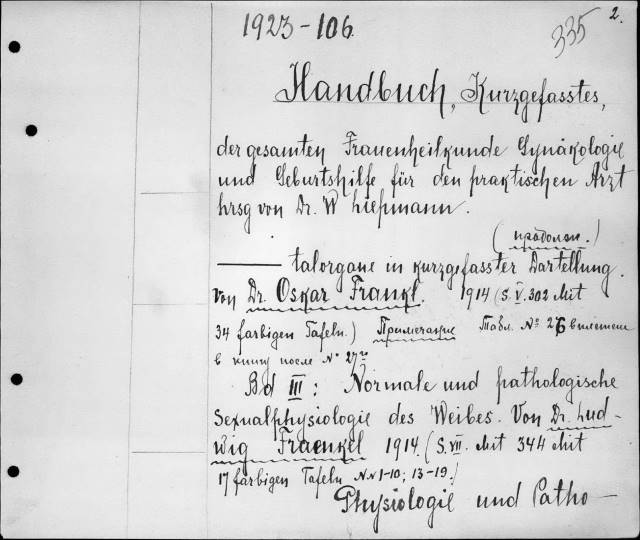 1923-106.
335
2.
Handbuch, Kurzgefasstes,
der gesamten Frauenheilkunde Gynäkologie
und Geburtshilfe für den praktischen Arzt
hrsg von Dr. W Liepmann.
(продолж.)
—— talorgane in kurzgefasster Dartellung.
Von Dr. Oskar Frankl. 1914 (S. V. 302 Mit
34 farbigen Tafeln.) Примечание Табл. № 26 вплетена
в книгу после № 27го
Bd III: Normale und pathologische
Sexualphysiologie des Weibes. Von Dr. Lud-
wig Fraenkel 1914. (S. VII. Mit 344 Mit
17 farbigen Tafeln N.N 1-10; 13-19.)
Physiologie und Patho-